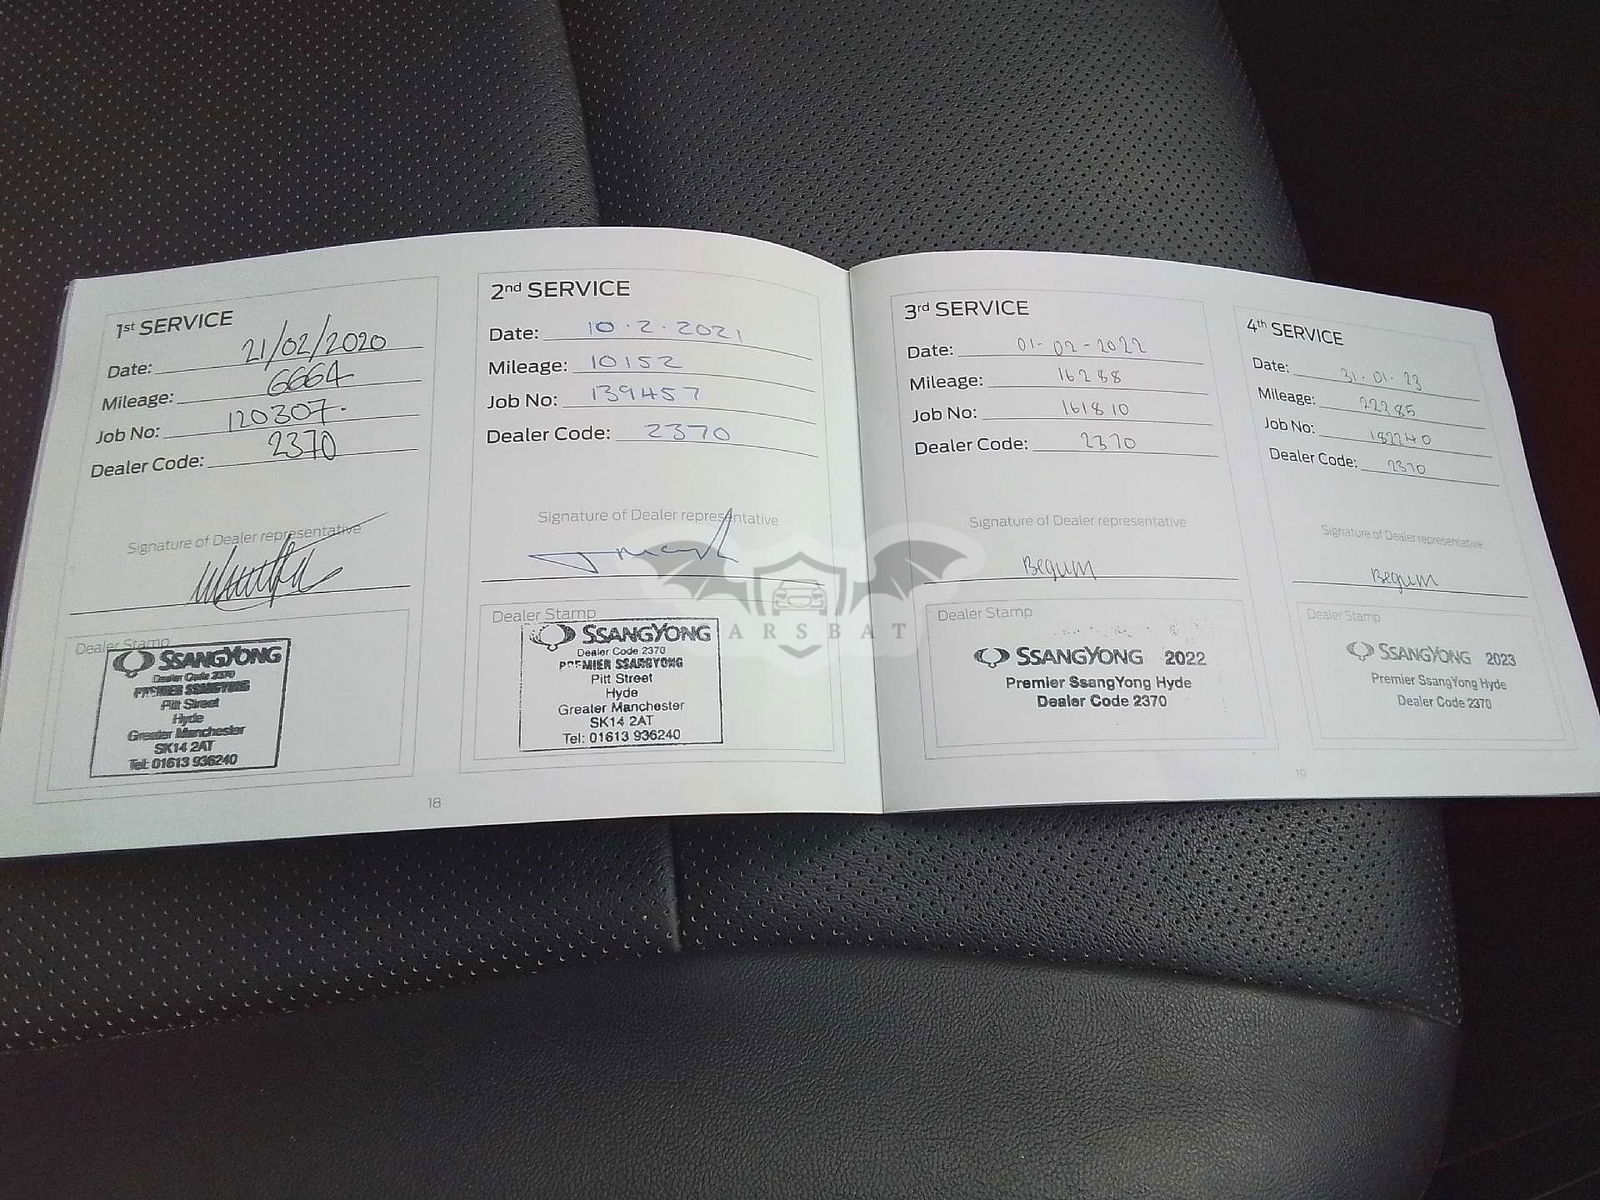 1st SERVICE
Date: 21/02/2020
Mileage: 6664
Job No: 120307.
Dealer Code: 2370
Signature of Dealer representative
Dealer Stamp
SSANGYONG
Dealer Code 2370
PREMIER SSANGYONG
Pitt Street
Hyde
Greater Manchester
SK14 2AT
Tel: 01613 936240
18
2nd SERVICE
Date: 10.2.2021
Mileage: 10152
Job No: 139457
Dealer Code: 2370
Signature of Dealer representative
Dealer Stamp
SSANGYONG
Dealer Code 2370
PREMIER SSANGYONG
Pitt Street
Hyde
Greater Manchester
SK14 2AT
Tel: 01613 936240
ARSBAT
3rd SERVICE
Date: 01-02-2022
Mileage: 16288
Job No: 161810
Dealer Code: 2370
Signature of Dealer representative
Begum
Dealer Stamp
SSANGYONG 2022
Premier SsangYong Hyde
Dealer Code 2370
4th SERVICE
Date: 31.01.23
Mileage: 22285
Job No: 182240
Dealer Code: 2370
Signature of Dealer representative
Begum
Dealer Stamp
SSANGYONG 2023
Premier SsangYong Hyde
Dealer Code 2370
19